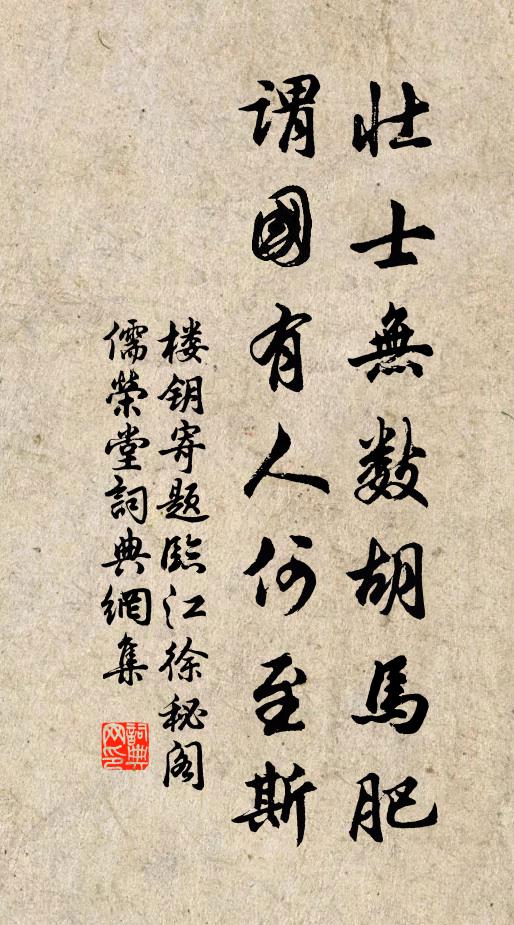 壮士無数胡馬肥
謂國有人何至斯
楼钥寄题臨江徐秘阁
儒榮堂詞典網集
詞典
网印